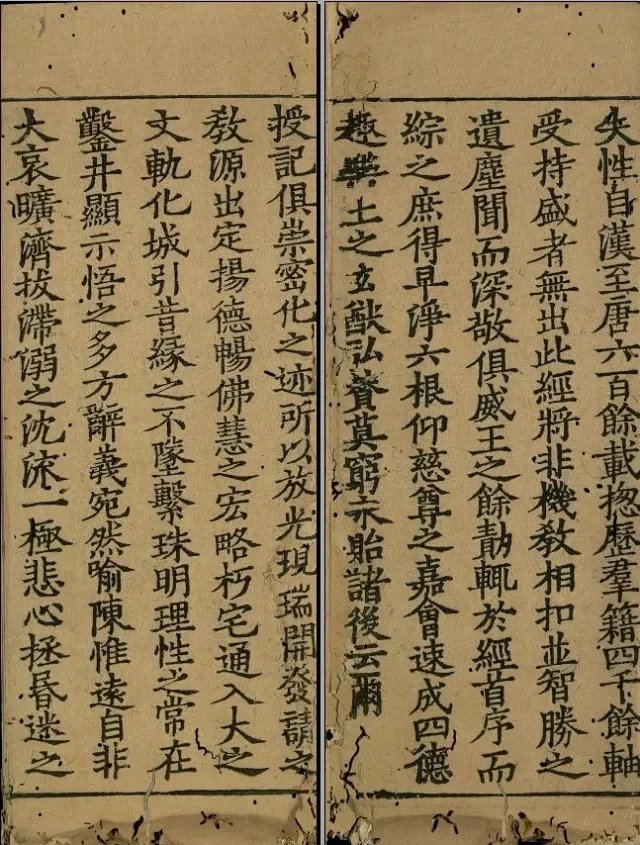 授記俱崇密化之迹所以放光現瑞開發請之
教源出定揚德暢佛慧之宏略朽宅通入大之
文軌化城引昔緣之不墜繫珠明理性之常在
鑿井顯示悟之多方辭義宛然喻陳惟遠自非
大哀曠濟拔滯溺之沈流一極悲心拯昬迷之
失性自漢至唐六百餘載揔歷羣籍四千餘軸
受持盛者無出此經將非機教相扣並智勝之
遺塵聞而深敬俱威王之餘勣輒於經首序而
綜之庶得早淨六根仰慈尊之嘉會速成四德
趣樂土之玄猷弘贊莫窮永貽諸後云爾